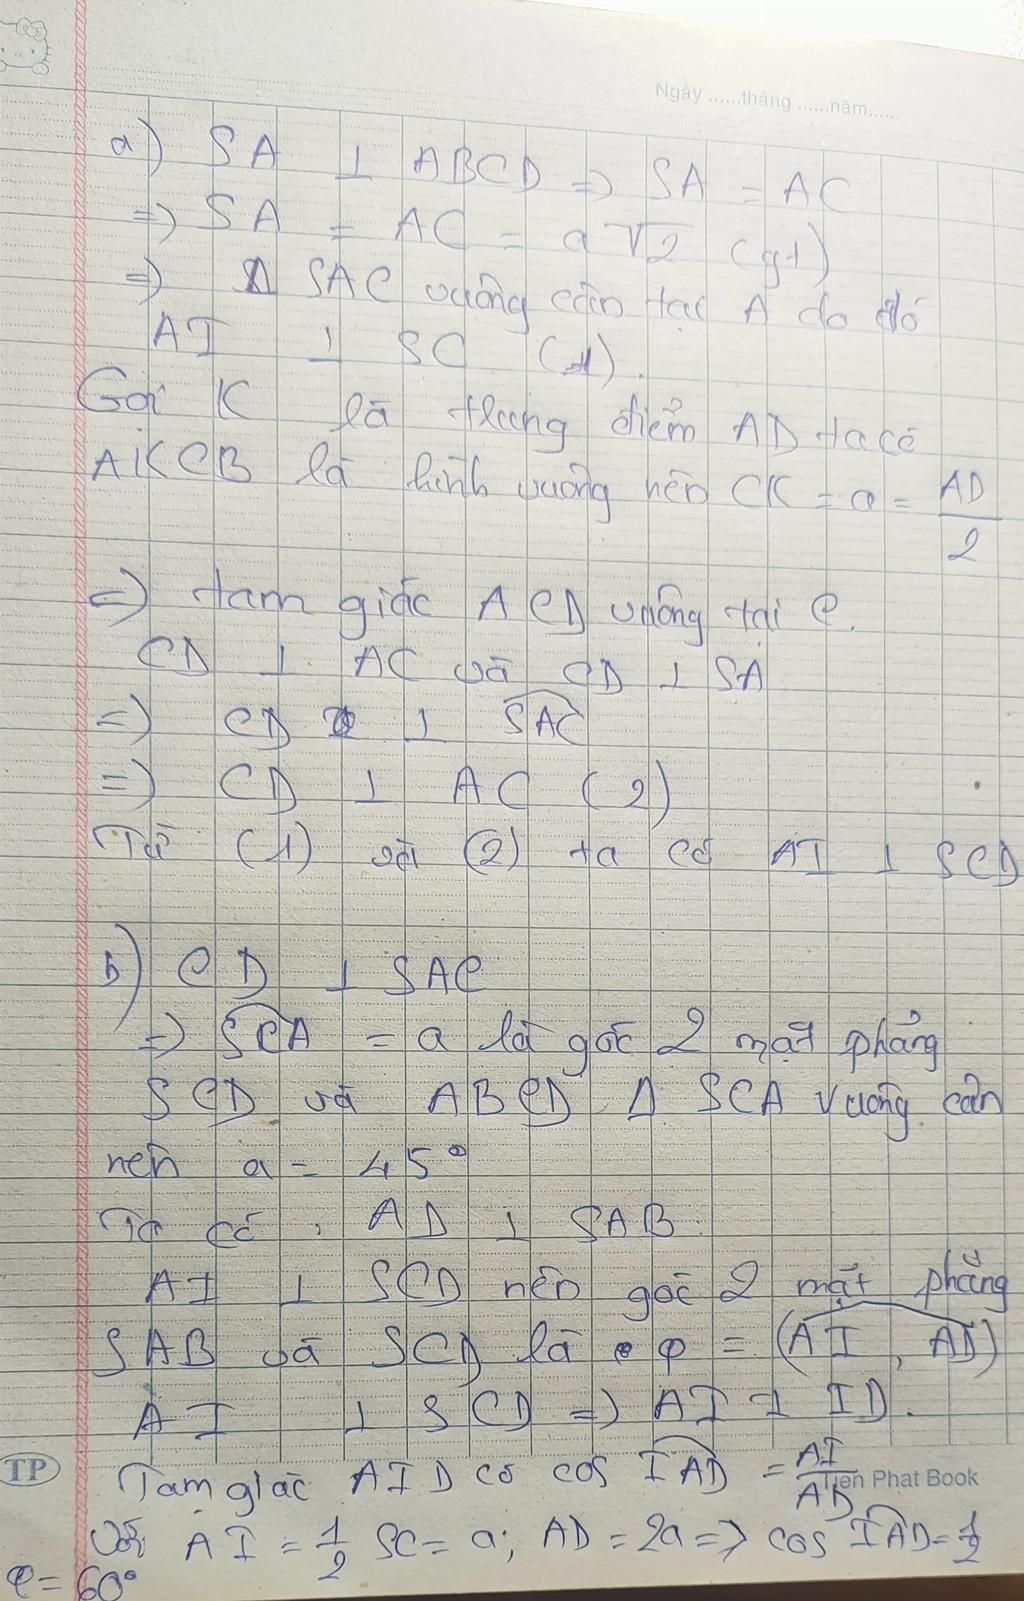 Ngày ......tháng ......năm......
a) SA ⊥ ABCD => SA = AC
=> SA = AC = a√2 (gt)
=> Δ SAC vuông cân tại A do đó
AI ⊥ SC (1).
Gọi K là trung điểm AD ta có
AKCB là hình vuông nên CK = a = AD/2
=> tam giác ACD vuông tại C.
CD ⊥ AC và CD ⊥ SA
=> CD ⊥ SAC
=> CD ⊥ AC (2)
Từ (1) và (2) ta có AI ⊥ SCD
b) CD ⊥ SAC
=> SCA = a là góc 2 mặt phẳng
SCD và ABCD Δ SCA vuông cân
nên a = 45°
Ta có, AD ⊥ SAB.
AI ⊥ SCD nên góc 2 mặt phẳng
SAB và SCD là φ = (AI, AD)
AI ⊥ SCD => AI ⊥ ID.
Tam giác AID có cos IAD = AI/AD
TP
Tien Phat Book
Với AI = 1/2 SC = a; AD = 2a => cos IAD = 1/2
φ = 60°